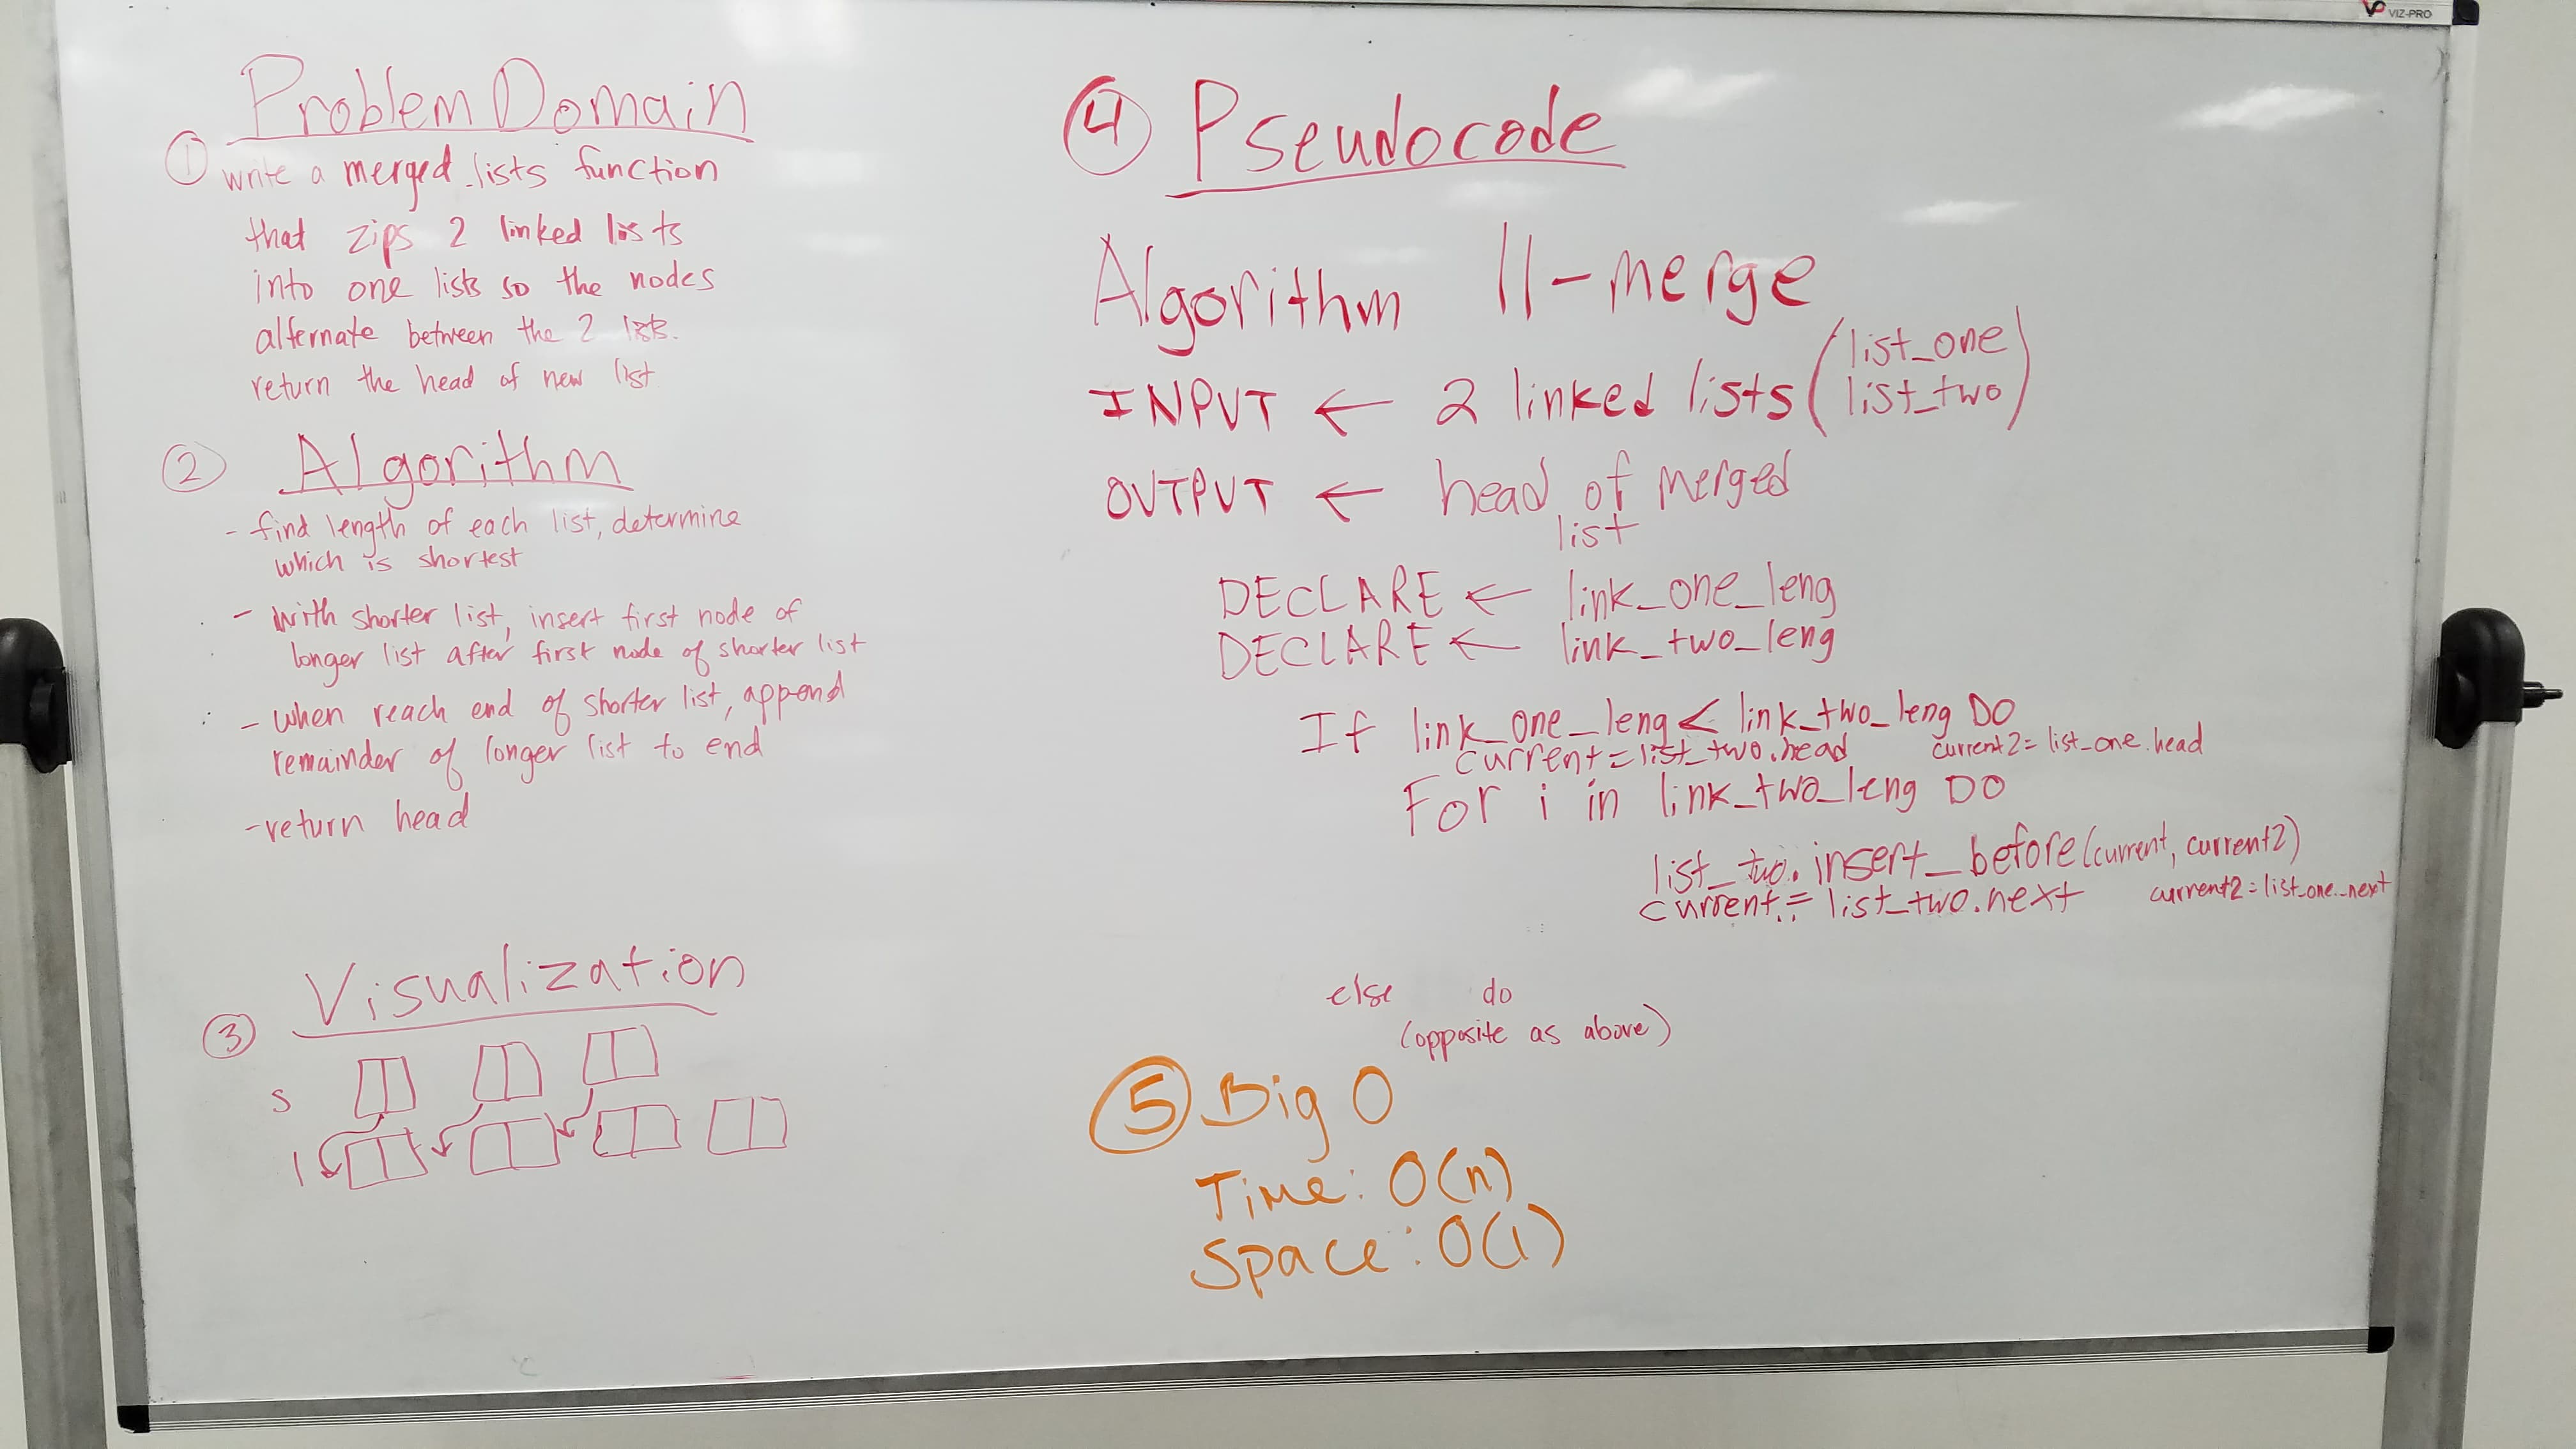 VIZ-PRO
Problem Domain
① write a merged_lists function
that zips 2 linked lists
into one lists so the nodes
alternate between the 2 lists.
return the head of new list
② Algorithm
- find length of each list, determine
which is shortest
- with shorter list, insert first node of
longer list after first node of shorter list
- when reach end of shorter list, append
remainder of longer list to end
- return head
Visualization
③
s
l
④ Pseudocode
Algorithm ll-merge
INPUT ← 2 linked lists (list_one
list_two)
OUTPUT ← head of merged
list
DECLARE ← link_one_leng
DECLARE ← link_two_leng
If link_one_leng < link_two_leng DO
current = list_two.head current2 = list_one.head
For i in link_two_leng DO
list_two.insert_before(current, current2)
current = list_two.next current2 = list_one.next
else do
(opposite as above)
⑤ Big O
Time: O(n)
Space: O(1)